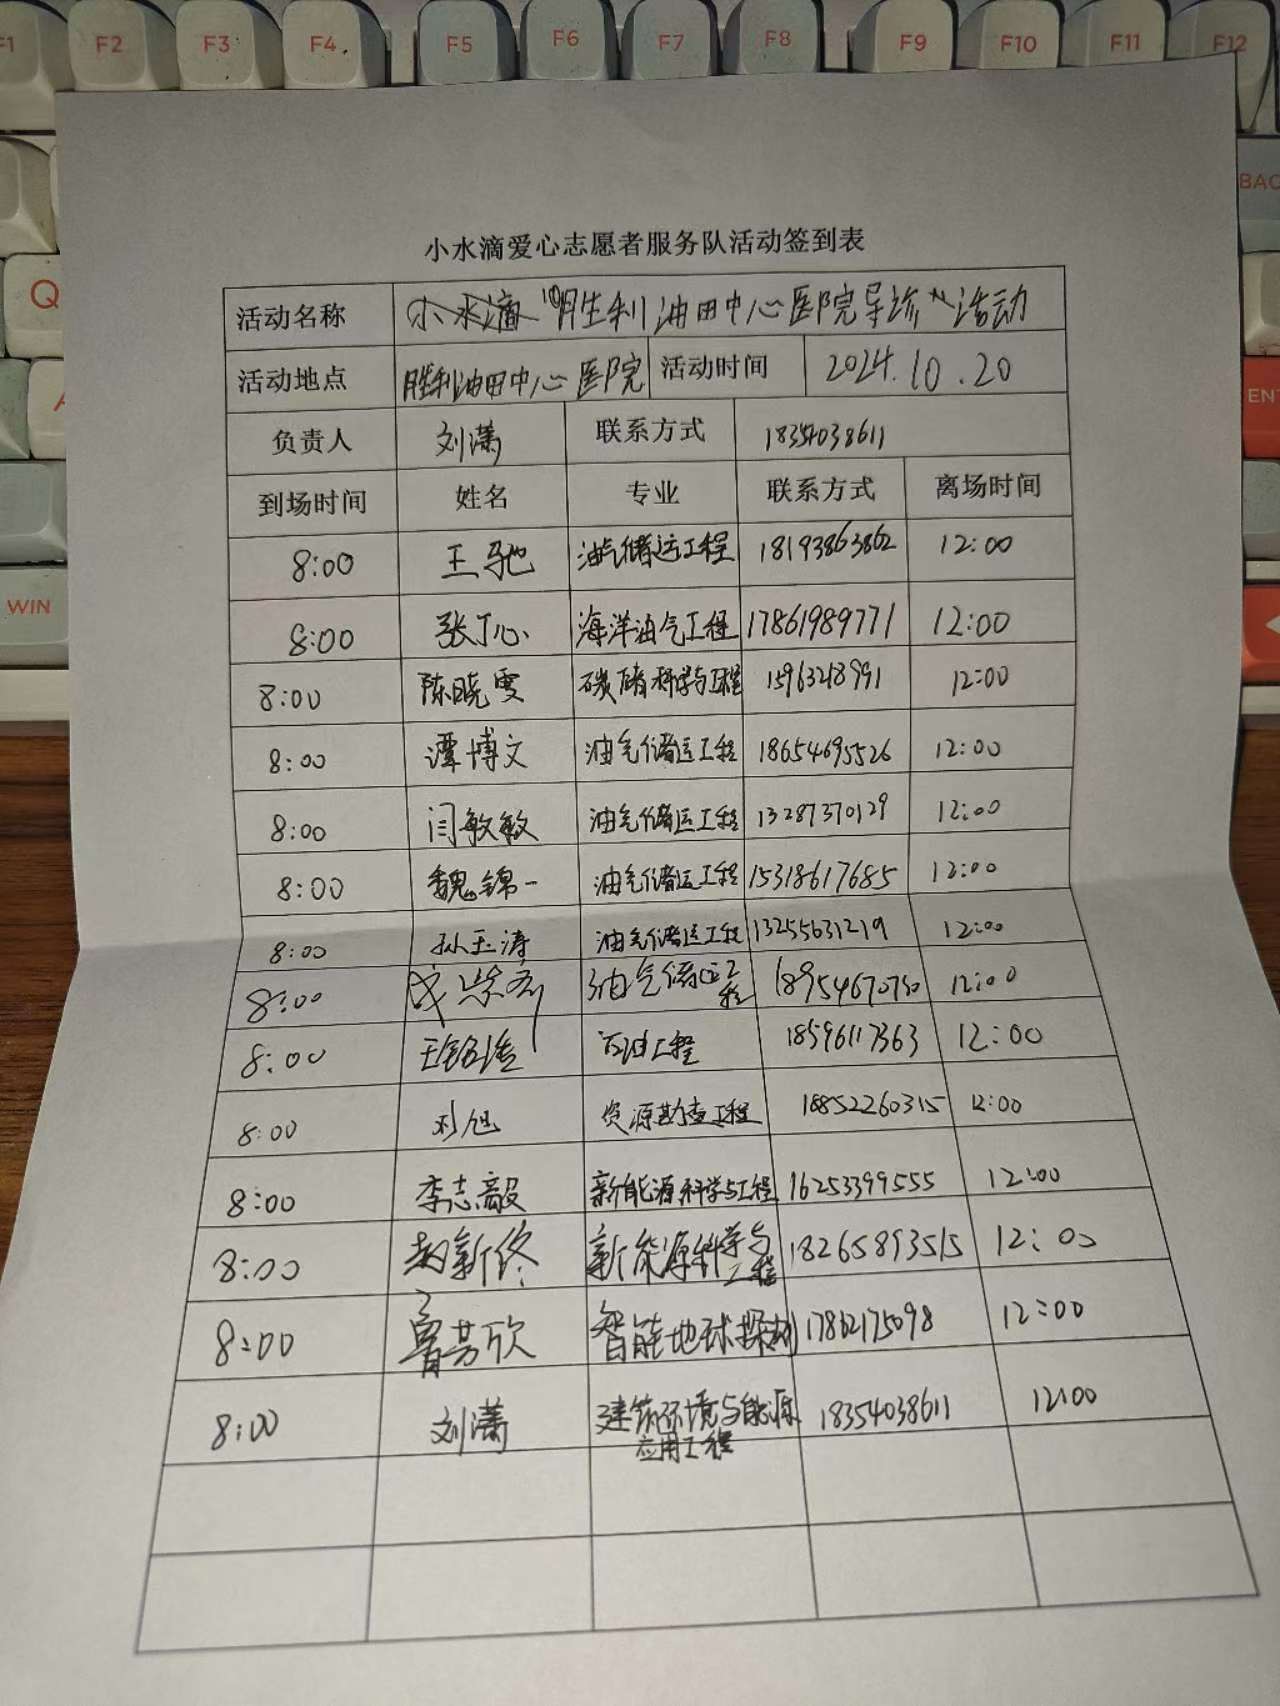 F1 F2 F3 F4 F5 F6 F7 F8 F9 F10 F11 F12
BAC
Q
EN
WIN
小水滴爱心志愿者服务队活动签到表
活动名称 小水滴“胜利油田中心医院导诊”活动
活动地点 胜利油田中心医院 活动时间 2024.10.20
负责人 刘潇 联系方式 18354038611
到场时间 姓名 专业 联系方式 离场时间
8:00 王驰 油气储运工程 18193863862 12:00
8:00 张丁心 海洋油气工程 17861989771 12:00
8:00 陈晓雯 碳储科学与工程 15963218991 12:00
8:00 谭博文 油气储运工程 18654695526 12:00
8:00 闫敏敏 油气储运工程 13287370129 12:00
8:00 魏锦一 油气储运工程 15318617685 12:00
8:00 孙玉涛 油气储运工程 13255631219 12:00
8:00 油气储运工程 18954670730 12:00
8:00 石油工程 18596117363 12:00
8:00 刘旭 资源勘查工程 18852260315 12:00
8:00 李志毅 新能源科学与工程 16253399555 12:00
8:00 赵新终 新能源科学与工程 18265893515 12:00
8:00 鲁芸欣 智能地球探测 17862175098 12:00
8:00 刘潇 建筑环境与能源应用工程 18354038611 12:00